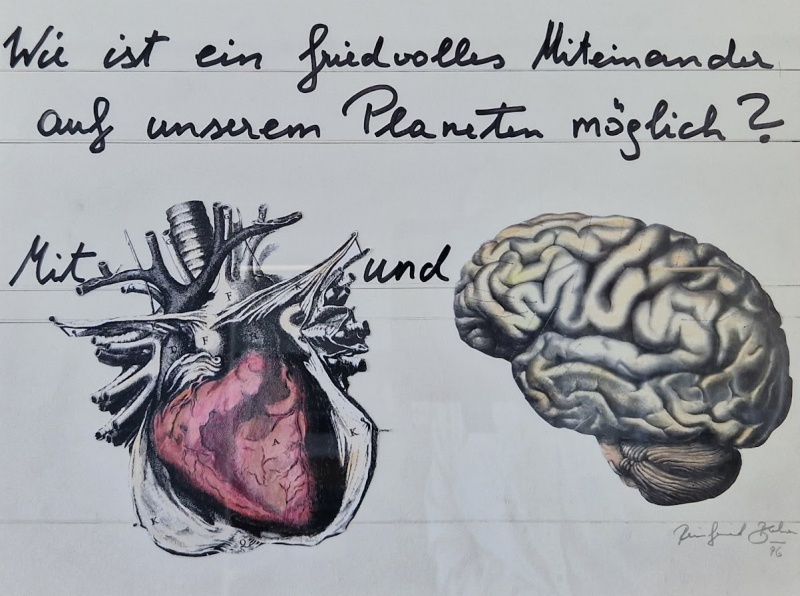 Wie ist ein friedvolles Miteinander
auf unserem Planeten möglich?
Mit und
F
F
A
K
K
96